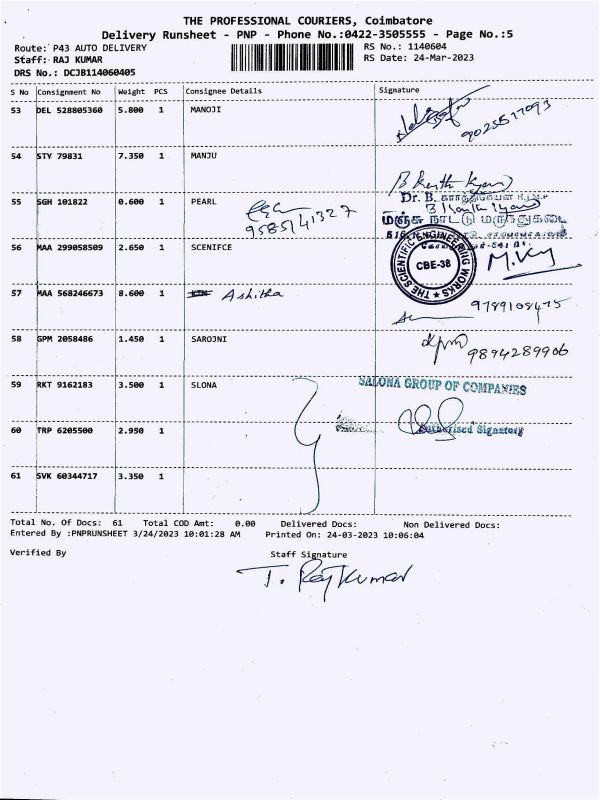 THE PROFESSIONAL COURIERS, Coimbatore
Delivery Runsheet - PNP - Phone No.:0422-3505555 - Page No.:5
Route: P43 AUTO DELIVERY
RS No.: 1140604
Staff: RAJ KUMAR
RS Date: 24-Mar-2023
DRS No.: DCJB114060405
S No Consignment No Weight PCS Consignee Details Signature
53 DEL 528805360 5.800 1 MANOJI
9025577093
54 STY 79831 7.350 1 MANJU
55 SGH 101822 0.600 1 PEARL
Dr. B. கார்த்திகேயன்
9585141327
மஞ்சு நாட்டு மருந்துகடை
56 MAA 299058509 2.650 1 SCENIFCE
THE SCIENTIFIC ENGINEERING WORKS
CBE-38
M.Ky
57 MAA 568246673 8.600 1 Ashitha
9789108475
58 GPM 2058486 1.450 1 SAROJNI
9894289906
59 RKT 9162183 3.500 1 SLONA
SALONA GROUP OF COMPANIES
60 TRP 6205500 2.950 1
Authorised Signatory
61 SVK 60344717 3.350 1
Total No. Of Docs: 61 Total COD Amt: 0.00 Delivered Docs: Non Delivered Docs:
Entered By :PNPRUNSHEET 3/24/2023 10:01:28 AM Printed On: 24-03-2023 10:06:04
Verified By Staff Signature
T. Rajkumar